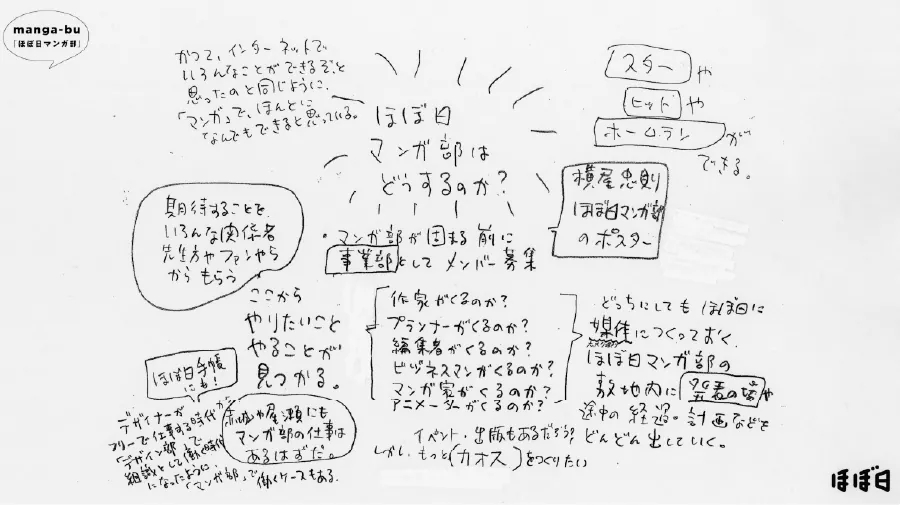 manga-bu
「ほぼ日マンガ部」
かつて、インターネットで
いろんなことができるぞ、と
思ったのと同じように、
「マンガ」で、ほんとに
なんでもできると思っている。
ほぼ日
マンガ部は
どうするのか?
スターや
ヒットや
ホームランが
できる。
横尾忠則
ほぼ日マンガ部
のポスター
・マンガ部が固まる前に
事業部としてメンバー募集
期待することを
いろんな関係者
先生方やファンやら
からもらう
ここから
やりたいこと
やることが
見つかる。
作家がくるのか?
プランナーがくるのか?
編集者がくるのか?
ビジネスマンがくるのか?
マンガ家がくるのか?
アニメーターがくるのか?
どっちにしてもほぼ日に
媒体につくっておく
ほぼ日マンガ部の
敷地内に発表の場や
途中の経過。計画などを
どんどん出していく。
イベント・出版もあるだろう?
しかし、もっと(カオス)をつくりたい
ほぼ日手帳
にも!
デザイナーが
フリーで仕事する時代から
「デザイン部」で
組織として働く時代
になったように、
「マンガ部」で働くケースもある。
や屋瀬にも
マンガ部の仕事は
あるはずだ。
ほぼ日